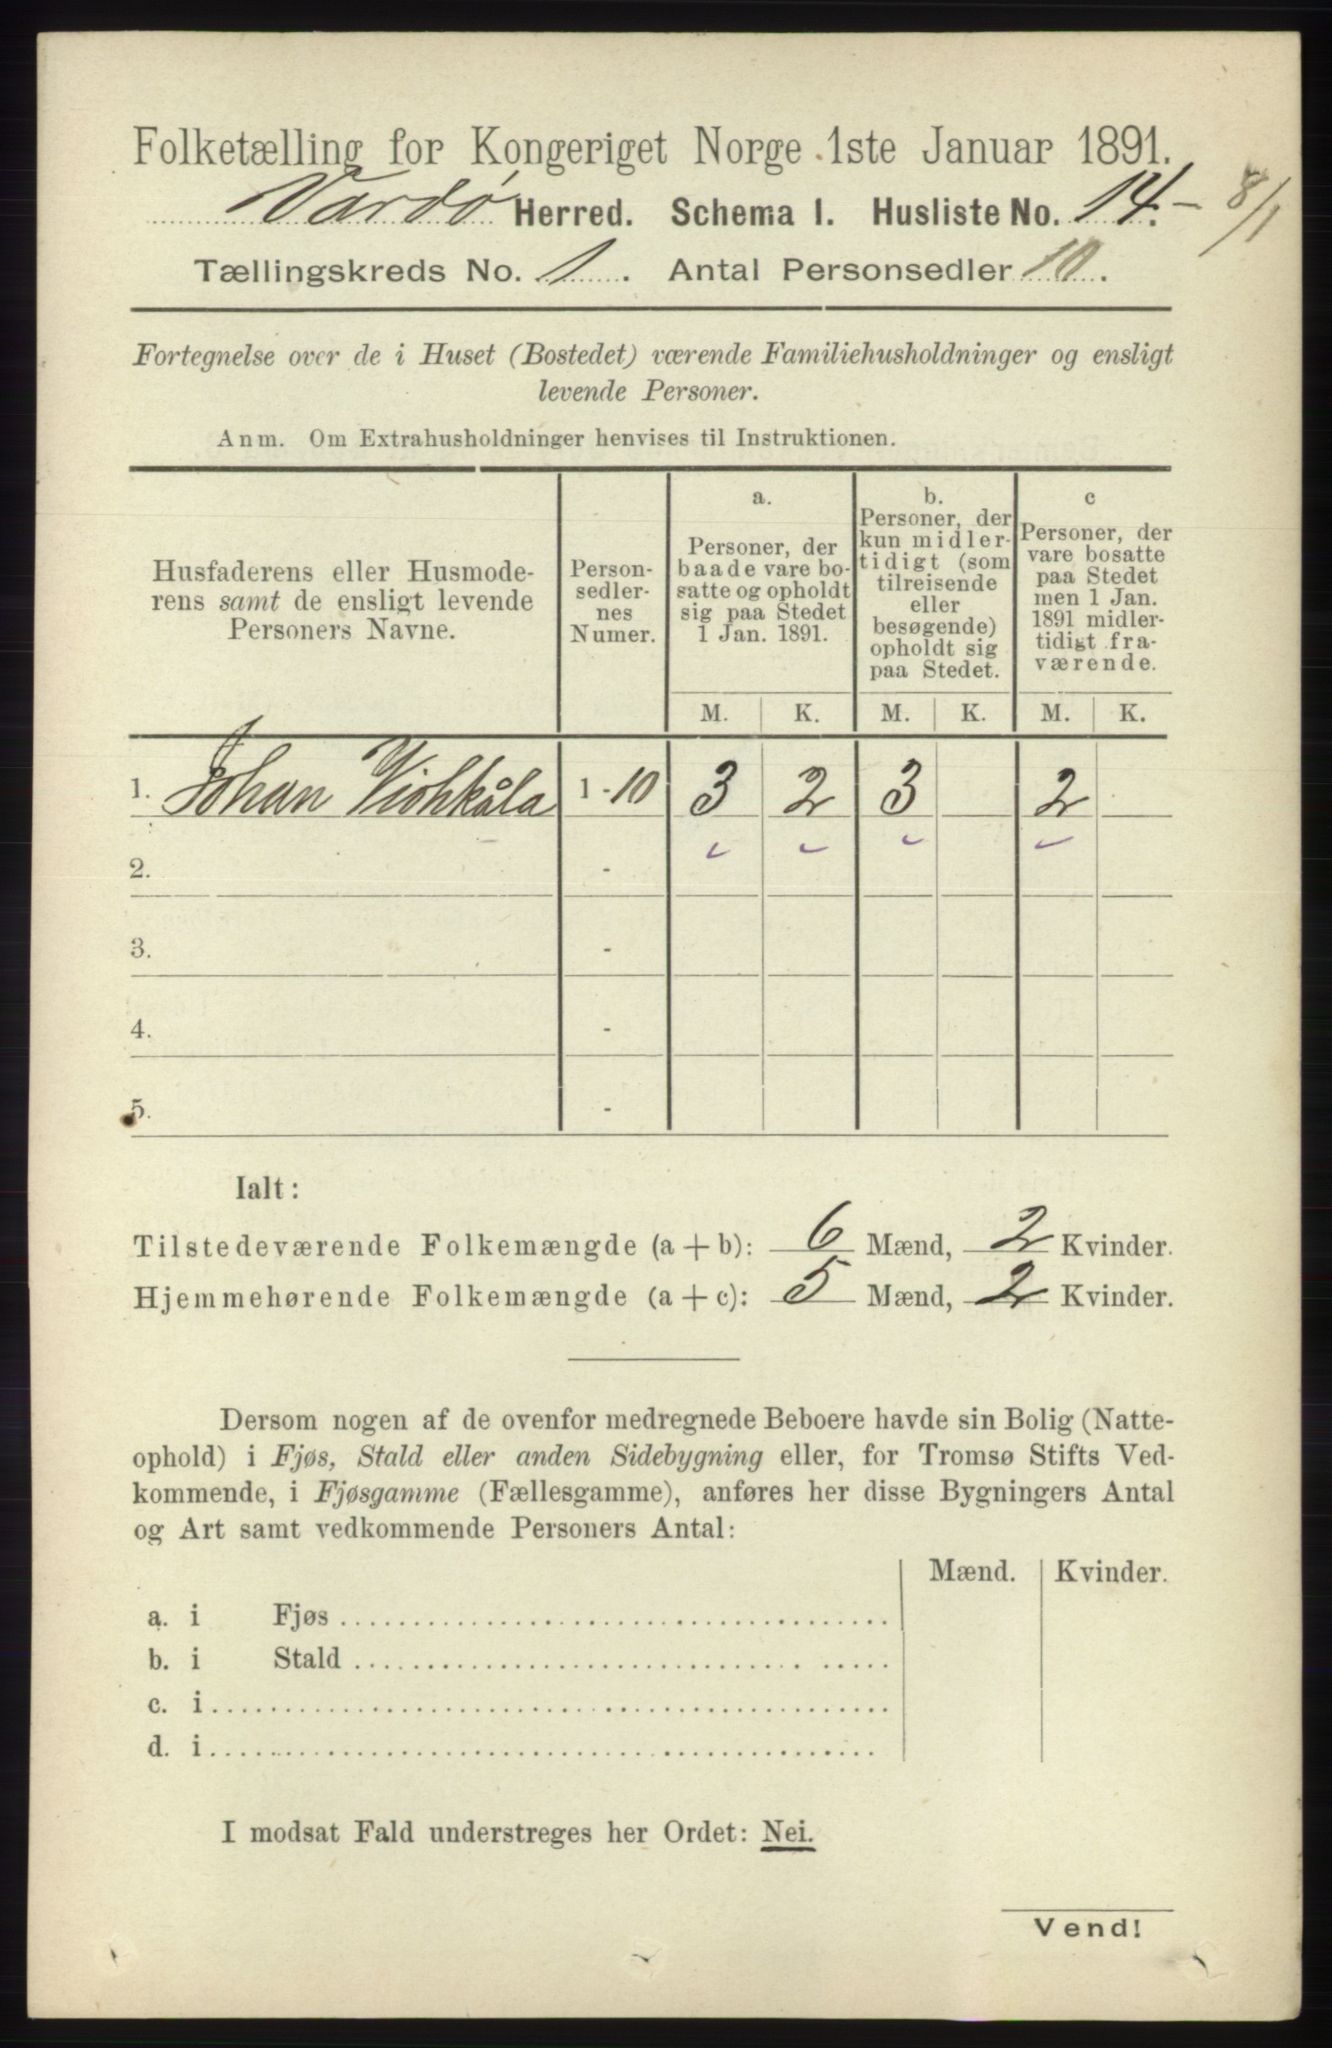 Folketælling for Kongeriget Norge 1ste Januar 1891.
Vardø Herred. Schema I. Husliste No. 14. - 8/1
Tællingskreds No. 1. Antal Personsedler 10.
Fortegnelse over de i Huset (Bostedet) værende Familiehusholdninger og ensligt
levende Personer.
Anm. Om Extrahusholdninger henvises til Instruktionen.
Husfaderens eller Husmode-
rens samt de ensligt levende
Personers Navne.
Person-
sedler-
nes
Numer.
a.
Personer, der
baade vare bo-
satte og opholdt
sig paa Stedet
1 Jan. 1891.
b.
Personer, der
kun midler-
tidigt (som
tilreisende
eller
besøgende)
opholdt sig
paa Stedet.
c
Personer, der
vare bosatte
paa Stedet
men 1 Jan.
1891 midler-
tidigt fra-
værende.
M. K. M. K. M. K.
1. Johan 1 - 10 3 2 3 2
2. -
3. -
4. -
5. -
Ialt:
Tilstedeværende Folkemængde (a + b): 6 Mænd, 2 Kvinder.
Hjemmehørende Folkemængde (a + c): 5 Mænd, 2 Kvinder.
Dersom nogen af de ovenfor medregnede Beboere havde sin Bolig (Natte-
ophold) i Fjøs, Stald eller anden Sidebygning eller, for Tromsø Stifts Ved-
kommende, i Fjøsgamme (Fællesgamme), anføres her disse Bygningers Antal
og Art samt vedkommende Personers Antal:
Mænd. Kvinder.
a. i Fjøs
b. i Stald
c. i
d. i
I modsat Fald understreges her Ordet: Nei.
Vend!